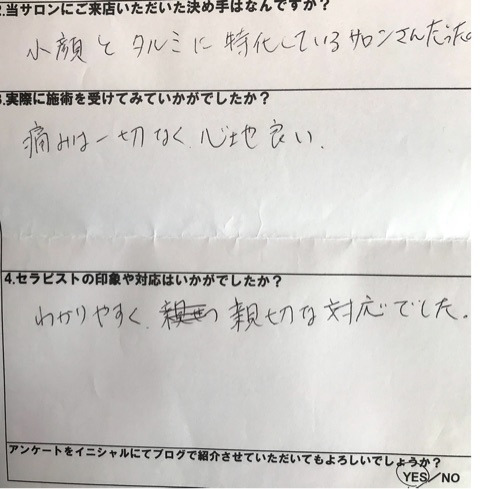 2.当サロンにご来店いただいた決め手はなんですか？
小顔とタルミに特化しているサロンさんだった
3.実際に施術を受けてみていかがでしたか？
痛みは一切なく、心地良い、
4.セラピストの印象や対応はいかがでしたか？
わかりやすく、親切な対応でした。
アンケートをイニシャルにてブログで紹介させていただいてもよろしいでしょうか？
YES/NO